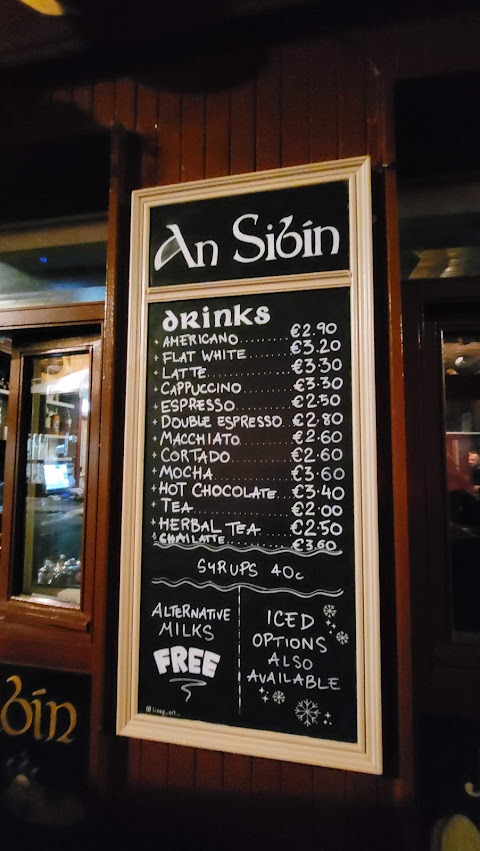 An Sibín
drinks
+ AMERICANO........ €2.90
+ FLAT WHITE....... €3.20
+ LATTE............ €3.30
+ CAPPUCCINO....... €3.30
+ ESPRESSO......... €2.50
+ DOUBLE ESPRESSO.. €2.80
+ MACCHIATO........ €2.60
+ CORTADO.......... €2.60
+ MOCHA............ €3.60
+ HOT CHOCOLATE... €3.40
+ TEA.............. €2.00
+ HERBAL TEA....... €2.50
+ CHAI LATTE....... €3.60
SYRUPS 40c
ALTERNATIVE
MILKS
FREE
ICED
OPTIONS
ALSO
AVAILABLE
bín